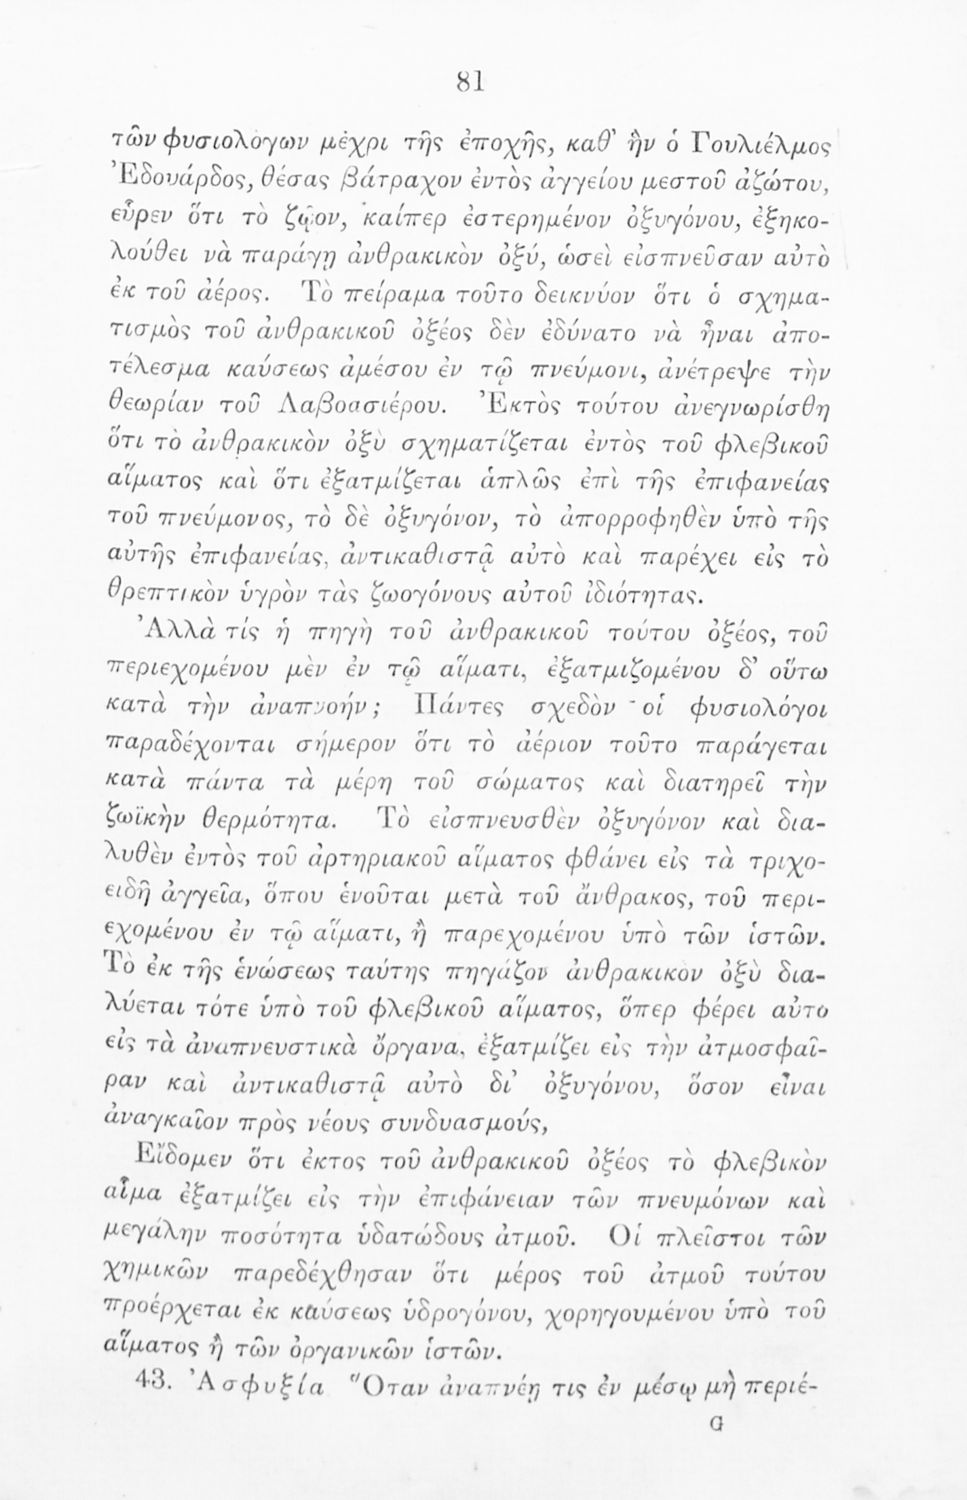 81
τῶν φυσιολόγων μέχρι τῆς ἐποχῆς, καθ' ἣν ὁ Γουλιέλμος
Ἐδουάρδος, θέσας βάτραχον ἐντὸς ἀγγείου μεστοῦ ἀζώτου,
εὗρεν ὅτι τὸ ζῷον, καίπερ ἐστερημένον ὀξυγόνου, ἐξηκο-
λούθει νὰ παράγῃ ἀνθρακικὸν ὀξύ, ὡσεὶ εἰσπνεῦσαν αὐτὸ
ἐκ τοῦ ἀέρος. Τὸ πείραμα τοῦτο δεικνύον ὅτι ὁ σχημα-
τισμὸς τοῦ ἀνθρακικοῦ ὀξέος δὲν ἐδύνατο νὰ ἦναι ἀπο-
τέλεσμα καύσεως ἀμέσου ἐν τῷ πνεύμονι, ἀνέτρεψε τὴν
θεωρίαν τοῦ Λαβοασιέρου. Ἐκτὸς τούτου ἀνεγνωρίσθη
ὅτι τὸ ἀνθρακικὸν ὀξὺ σχηματίζεται ἐντὸς τοῦ φλεβικοῦ
αἵματος καὶ ὅτι ἐξατμίζεται ἁπλῶς ἐπὶ τῆς ἐπιφανείας
τοῦ πνεύμονος, τὸ δὲ ὀξυγόνον, τὸ ἀπορροφηθὲν ὑπὸ τῆς
αὐτῆς ἐπιφανείας, ἀντικαθιστᾷ αὐτὸ καὶ παρέχει εἰς τὸ
θρεπτικὸν ὑγρὸν τὰς ζωογόνους αὐτοῦ ἰδιότητας.
Ἀλλὰ τίς ἡ πηγὴ τοῦ ἀνθρακικοῦ τούτου ὀξέος, τοῦ
περιεχομένου μὲν ἐν τῷ αἵματι, ἐξατμιζομένου δ' οὕτω
κατὰ τὴν ἀναπνοήν; Πάντες σχεδὸν οἱ φυσιολόγοι
παραδέχονται σήμερον ὅτι τὸ ἀέριον τοῦτο παράγεται
κατὰ πάντα τὰ μέρη τοῦ σώματος καὶ διατηρεῖ τὴν
ζωϊκὴν θερμότητα. Τὸ εἰσπνευσθὲν ὀξυγόνον καὶ δια-
λυθὲν ἐντὸς τοῦ ἀρτηριακοῦ αἵματος φθάνει εἰς τὰ τριχο-
ειδῆ ἀγγεῖα, ὅπου ἑνοῦται μετὰ τοῦ ἄνθρακος, τοῦ περι-
εχομένου ἐν τῷ αἵματι, ἢ παρεχομένου ὑπὸ τῶν ἱστῶν.
Τὸ ἐκ τῆς ἑνώσεως ταύτης πηγάζον ἀνθρακικὸν ὀξὺ δια-
λύεται τότε ὑπὸ τοῦ φλεβικοῦ αἵματος, ὅπερ φέρει αὐτὸ
εἰς τὰ ἀναπνευστικὰ ὄργανα, ἐξατμίζει εἰς τὴν ἀτμοσφαῖ-
ραν καὶ ἀντικαθιστᾷ αὐτὸ δι' ὀξυγόνου, ὅσον εἶναι
ἀναγκαῖον πρὸς νέους συνδυασμούς,
Εἴδομεν ὅτι ἐκτος τοῦ ἀνθρακικοῦ ὀξέος τὸ φλεβικὸν
αἷμα ἐξατμίζει εἰς τὴν ἐπιφάνειαν τῶν πνευμόνων καὶ
μεγάλην ποσότητα ὑδατώδους ἀτμοῦ. Οἱ πλεῖστοι τῶν
χημικῶν παρεδέχθησαν ὅτι μέρος τοῦ ἀτμοῦ τούτου
προέρχεται ἐκ καύσεως ὑδρογόνου, χορηγουμένου ὑπὸ τοῦ
αἵματος ἢ τῶν ὀργανικῶν ἱστῶν.
43. Ἀσφυξία Ὅταν ἀναπνέῃ τις ἐν μέσῳ μὴ περιέ-
G